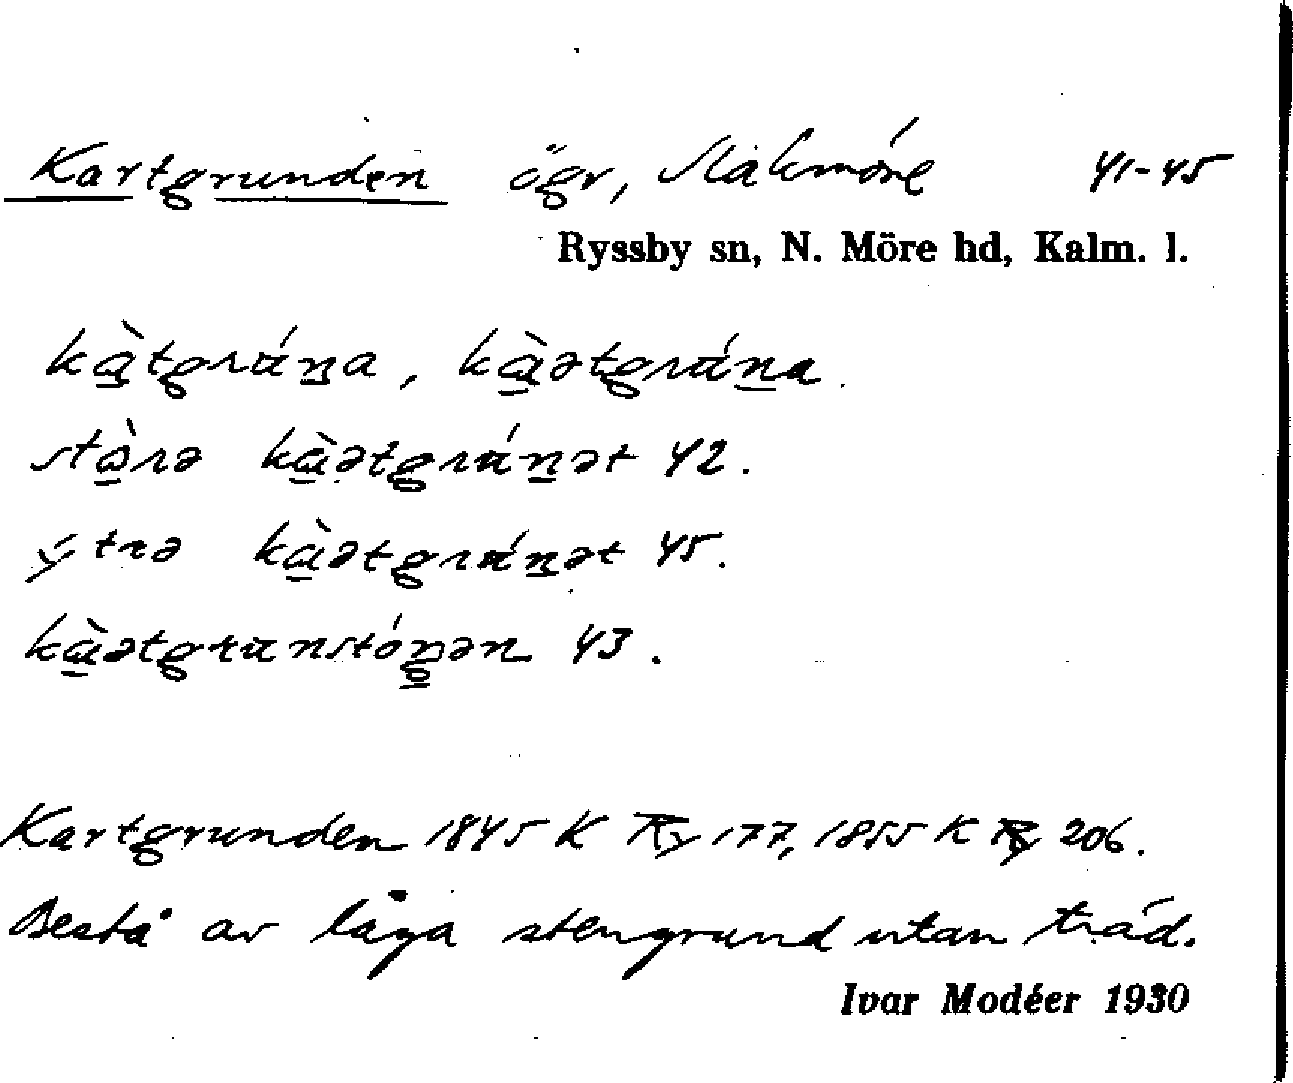 Kartgrunden ögr, Slakmöre 41-45
Ryssby sn, N. Möre hd, Kalm. l.
kàtgrúna, kàətgrúna.
stòrə kàətgrúnət 42.
ýtrə kàətgrúnət 45.
kàətgrunstóŋən 43.
Kartgrunden 1845 K Ry 177, 1855 K Ry 206.
Bestå av låga stengrund utan träd.
Ivar Modéer 1930